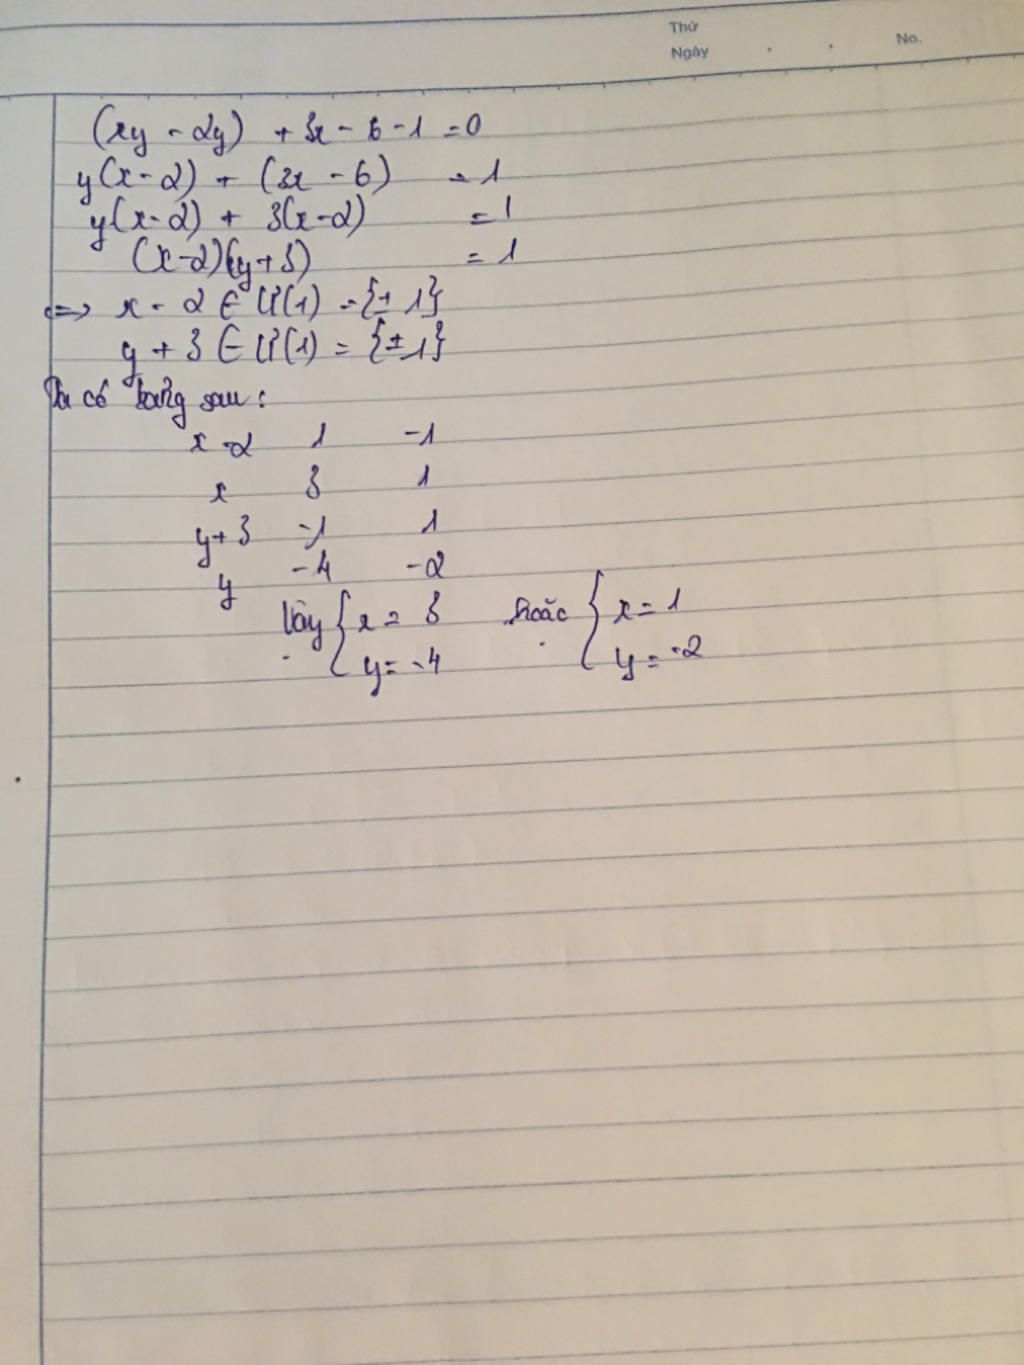 Thứ
Ngày . . No.
(xy - 2y) + 3x - 6 - 1 = 0
y(x - 2) + (3x - 6) = 1
y(x - 2) + 3(x - 2) = 1
(x - 2)(y + 3) = 1
<=> x - 2 ∈ Ư(1) = {± 1}
y + 3 ∈ Ư(1) = {± 1}
Ta có bảng sau :
x - 2 1 -1
x 3 1
y + 3 -1 1
y -4 -2
Vậy { x = 3 hoặc { x = 1
y = -4 y = -2